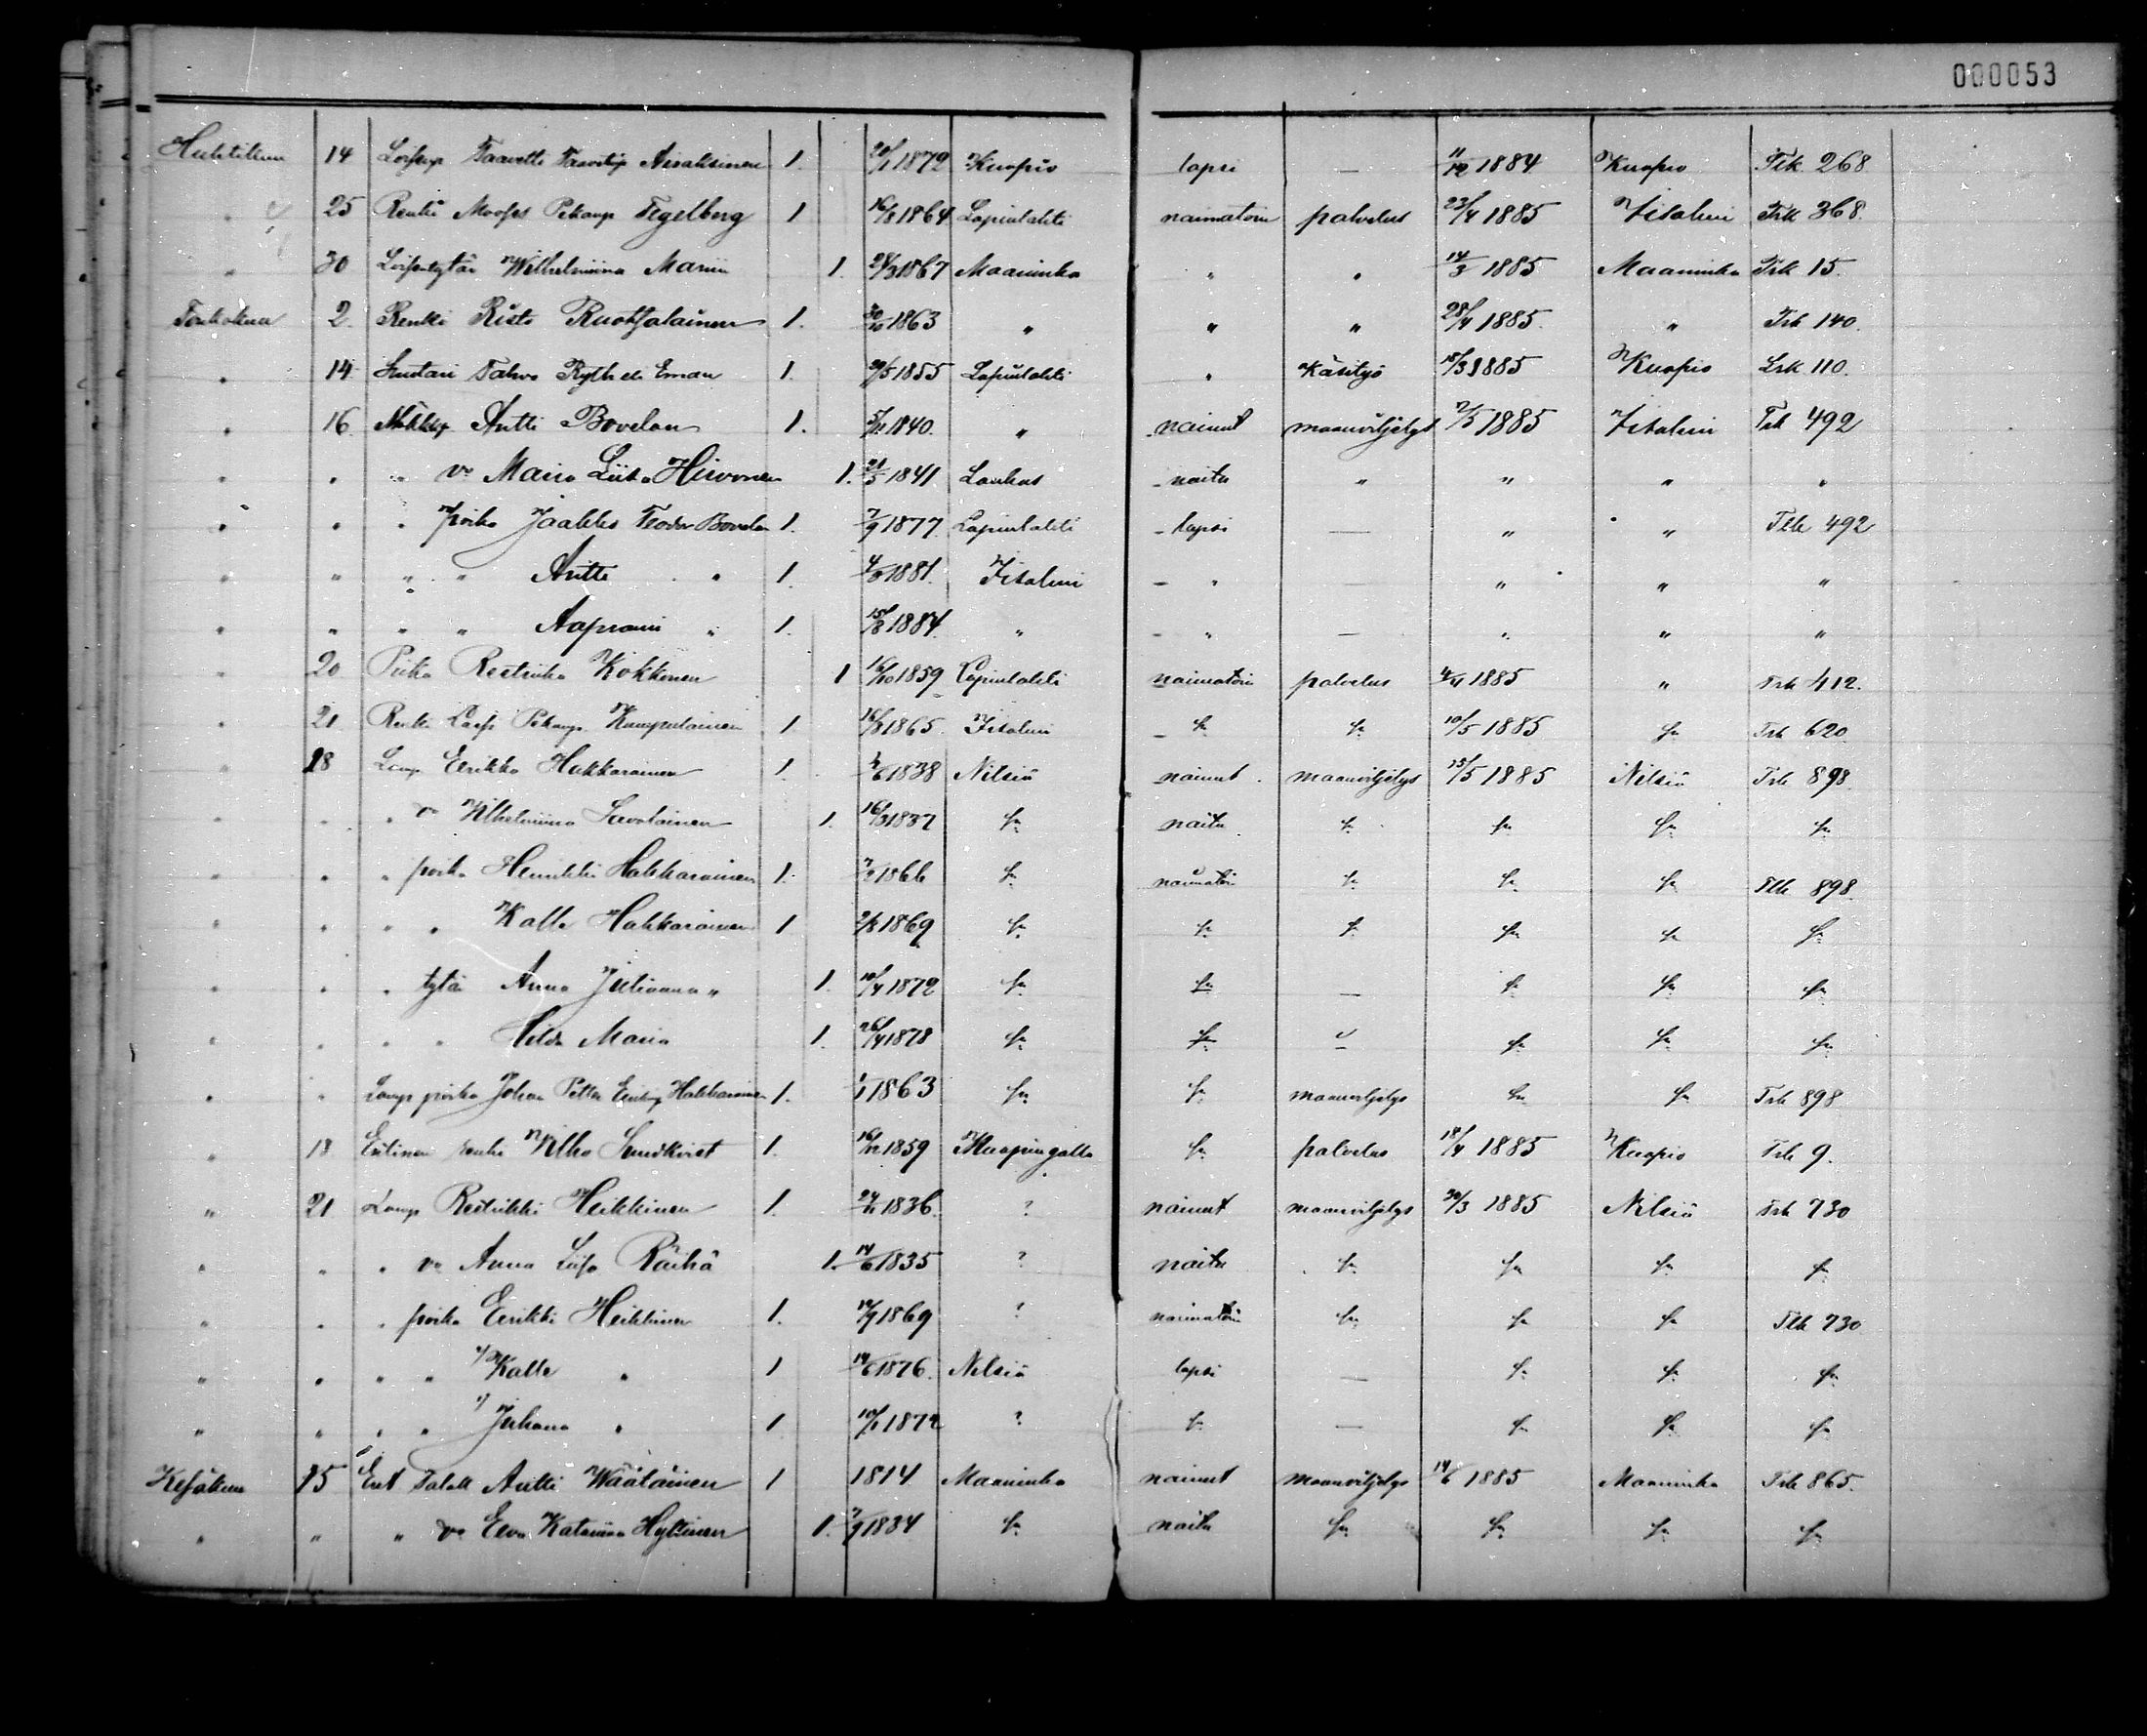 000053
Huhtikuu 14 Taavetti Aisaksinen 1. 20/1 1879 Kuopio lapsi — 11/12 1884 Kuopio Tlk 268
" 25 Renki Mooses Pekanp Tegelberg 1 16/8 1864 Lapinlahti naimatoin palvelus 23/4 1885 Iisalmi Trk 368.
" 30 Loisentytär Wilhelmiina 1. 1867 Maaninka " " 14/3 1885 Maaninka Trk 15.
Toukokuu 2 Renki Risto Ruotsalainen 1. 30/10 1863 " " " 28/4 1885. " Trk 140.
" 14 Suutari Tahvo 1. 1855 Lapinlahti " Käsityö 18/3 1885 Kuopio Lrk 110.
" 16 Antti Bovelan 1. 1840. " nainut maanviljelys 7/5 1885 Iisalmi Trk 492
" " " vo Maria Liisa Hirvonen 1. 21/3 1841 naitu " " " "
" " " poika Jaakko Teodor Bovelan 1. 7/9 1877. Lapinlahti lapsi — " " Tlk 492
" " " " Antti " 1. 1881. Iisalmi " — " " "
" " " " Aaprami " 1. 15/8 1884. " " — " " "
" 20 Piika Reetrikka Kokkonen 1 16/10 1859 Lapinlahti naimatoin palvelus 1885 " Trk 412.
" 21. Renki Pekanp. Kumpulainen 1 1865. Iisalmi sa sa 10/5 1885 sa Trk 620.
" 18 Lamp Eerikki Hakkarainen 1. 1838 Nilsiä nainut maanviljelys 15/5 1885 Nilsiä Trk 898.
" " " vo Wilhelmiina Savolainen 1. 16/3 1837 sa naitu sa sa sa sa
" " " poika Heinikki Hakkarainen 1. 1866 sa naimatoin sa sa sa Tlk 898.
" " " " Kalle Hakkarainen 1 2/8 1869 sa sa sa sa sa sa
" " " tytär Anna Juliaana " 1. 10/4 1872 sa sa — sa sa sa
" " " " Hilda Maria 1. 26/4 1878 sa sa — sa sa sa
" " Lamp poika Johan Petter Hakkarainen 1. 1/1 1863 sa sa maanviljelys sa sa Trk 898
" 18 Entinen renki Vilho Sundkvist 1. 16/12 1859 sa palvelus 18/4 1885 Kuopio Trk 9.
" 21 Lamp Reetrikki Heikkinen 1. 1836. ? nainut maanviljelys 30/3 1885 Nilsiä Trk 730
" " " vo Anna Liisa Räihä 1. 14/6 1835 ? naitu sa sa sa sa
" " " poika Eerikki Heikkinen 1. 1869 ? naimatoin sa sa sa Tlk 730
" " " " Kalle " 1 14/6 1876. Nilsiä lapsi — sa sa sa
" " " " Juhana " 1 1872 ? sa — sa sa sa
Kesäkuu 15 Ent Taloll Antti Väätäinen 1 1814 Maaninka nainut maanviljelys 14/6 1885 Maaninka Trk 865.
" " " vo Eeva Katariina Hyttinen 1. 7/9 1834 sa naitu sa sa sa sa